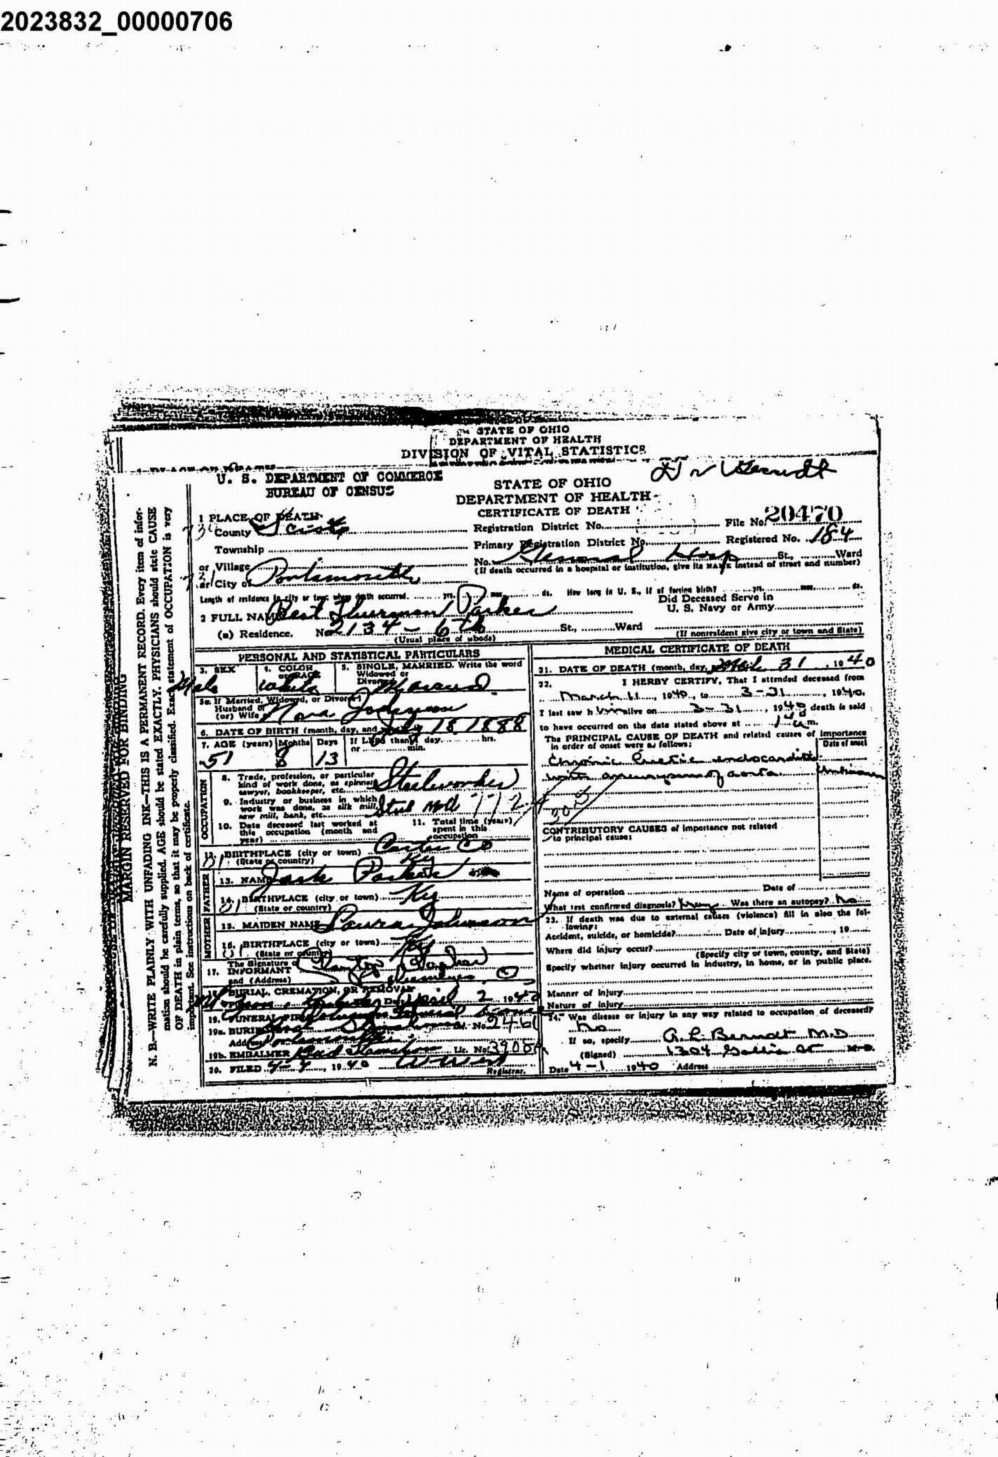 2023832_00000706
STATE OF OHIO
DEPARTMENT OF HEALTH
DIVISION OF VITAL STATISTICS
U. S. DEPARTMENT OF COMMERCE
BUREAU OF CENSUS
STATE OF OHIO
DEPARTMENT OF HEALTH
CERTIFICATE OF DEATH
MARGIN RESERVED FOR BINDING
N. B.—WRITE PLAINLY WITH UNFADING INK—THIS IS A PERMANENT RECORD. Every item of infor-
mation should be carefully supplied. AGE should be stated EXACTLY. PHYSICIANS should state CAUSE
OF DEATH in plain terms, so that it may be properly classified. Exact statement of OCCUPATION is very
important. See instructions on back of certificate.
1 PLACE OF DEATH
County Scioto
Registration District No. File No. 20470
Township
Primary Registration District No. Registered No. 184
or Village
No. General Hosp St., Ward
(If death occurred in a hospital or institution, give its NAME instead of street and number)
or City of Portsmouth
Length of residence in city or town where death occurred yrs. mos. ds. How long in U. S., if of foreign birth? yrs. mos. ds.
2 FULL NAME Bert Thurman Parker
Did Deceased Serve in
U. S. Navy or Army
(a) Residence. No. 2134 - 6th St., Ward
(Usual place of abode) (If nonresident give city or town and State)
PERSONAL AND STATISTICAL PARTICULARS
3. SEX Male
4. COLOR OR RACE white
5. SINGLE, MARRIED, Write the word
Widowed or
Divorced Married
5a. If Married, Widowed, or Divorced
Husband of
(or) Wife Nora
6. DATE OF BIRTH (month, day, and July 18 1888
7. AGE (years) Months Days If Less than 1 day hrs.
or min.
51 8 13
OCCUPATION
8. Trade, profession, or particular
kind of work done, as spinner,
sawyer, bookkeeper, etc. Steelworker
9. Industry or business in which
work was done, as silk mill,
saw mill, bank, etc. Steel Mill
10. Date deceased last worked at
this occupation (month and
year)
11. Total time (years)
spent in this
occupation
12. BIRTHPLACE (city or town) Carter Co
(State or country) Ky
FATHER
13. NAME Parker
14. BIRTHPLACE (city or town) Ky
(State or country)
MOTHER
15. MAIDEN NAME Laura Johnson
16. BIRTHPLACE (city or town) Ky
(State or country)
17. The Signature of
INFORMANT
and (Address)
18. BURIAL, CREMATION, OR REMOVAL
Date April 2 1940
19. FUNERAL
19a. BURIAL
19b. EMBALMER Lic. No.
20. FILED 4-4, 1940
Registrar.
MEDICAL CERTIFICATE OF DEATH
21. DATE OF DEATH (month, day, 31, 1940
22. I HERBY CERTIFY, That I attended deceased from
March 11, 1940, to 3-31, 1940.
I last saw h im alive on 3-31, 1940 death is said
to have occurred on the date stated above at a.m.
The PRINCIPAL CAUSE OF DEATH and related causes of importance
in order of onset were as follows: Date of onset
Chronic Luetic endocarditis
with aneurysm of aorta Unknown
CONTRIBUTORY CAUSES of importance not related
to principal cause:
Name of operation Date of
What test confirmed diagnosis? Was there an autopsy? No
23. If death was due to external causes (violence) fill in also the fol-
lowing:
Accident, suicide, or homicide? Date of injury, 19
Where did injury occur?
(Specify city or town, county, and State)
Specify whether injury occurred in industry, in home, or in public place.
Manner of injury
Nature of injury
24. Was disease or injury in any way related to occupation of deceased?
No
If so, specify
(Signed) A. L. Berndt M.D.
Date 4-1 1940 Address 1304 Gallia St